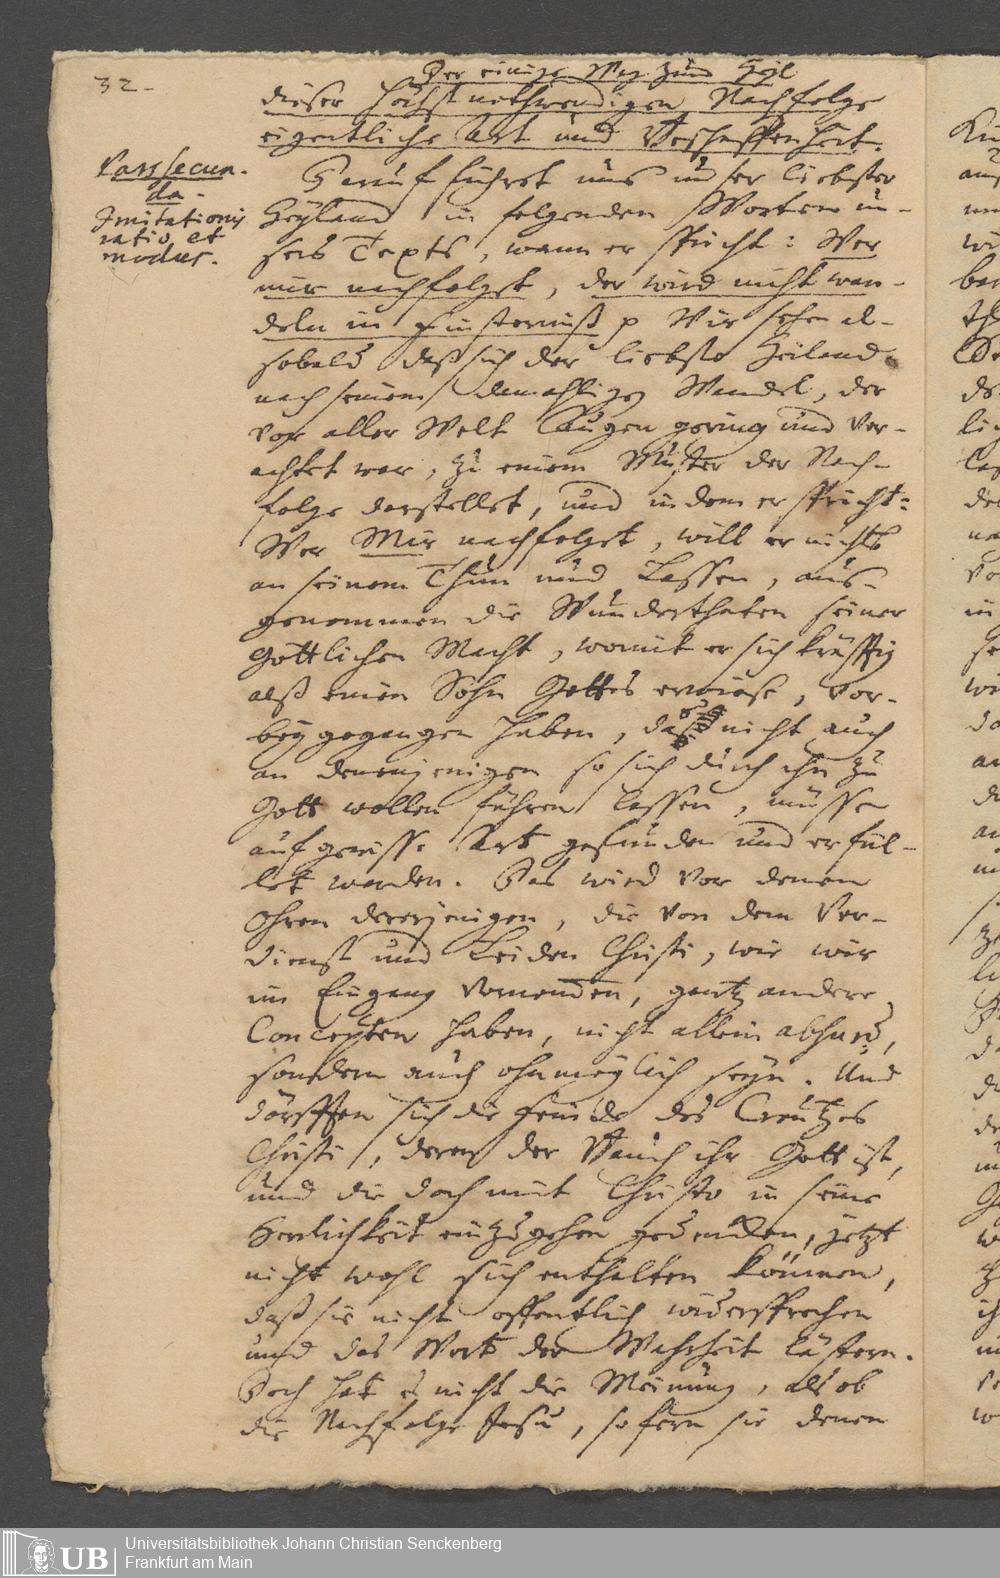 32.
Der einige Weg zum Heil
dieser höchstnothwendigen Nachfolge
eigentliche Art und Beschaffenheit.
Pars secun-
da.
Imitationis
ratio et
modus.
Hierauf führet uns unser liebster
Heyland in folgenden Worten un-
sers Texts, wann er spricht: Wer
mir nachfolget, der wird nicht wan-
deln in Finsterniß p Wir sehen al-
sobald daß sich der liebste Heiland
nach seinem damahligen Wandel, der
vor aller Welt Augen gering und ver-
achtet war, zu einem Muster der Nach-
folge darstellet, und indem er spricht:
Wer Mir nachfolget, will er nichts
an seinem Thun und Lassen, aus-
genommen die Wunderthaten seiner
Göttlichen Macht, womit er sich kräfftig
alß einen Sohn Gottes erwiese, vor-
bey gegangen haben, daß nicht auch
an denenjenigen so sich durch ihn zu
Gott wollen führen lassen, müsse
auf gewisse Art gefunden und erfül-
let werden. Das wird vor denen
Ohren dererjenigen, die von dem Ver-
dienst und Leiden Christi, wie wir
im Eingang vernommen, gantz andere
Concepten haben, nicht allein absurd,
sondern auch ohnmöglich seyn. Und
dörfften sich die Feinde des Creutzes
Christi, deren der Bauch ihr Gott ist,
und die doch mit Christo in seine
Herrlichkeit einzugehen gedencken, jetzt
nicht wohl sich enthalten können,
daß sie nicht offentlich widersprechen
und das Wort der Wahrheit lästern.
Doch hat es nicht die Meinung, als ob
die Nachfolge Jesu, so fern sie denen
UB
Universitätsbibliothek Johann Christian Senckenberg
Frankfurt am Main